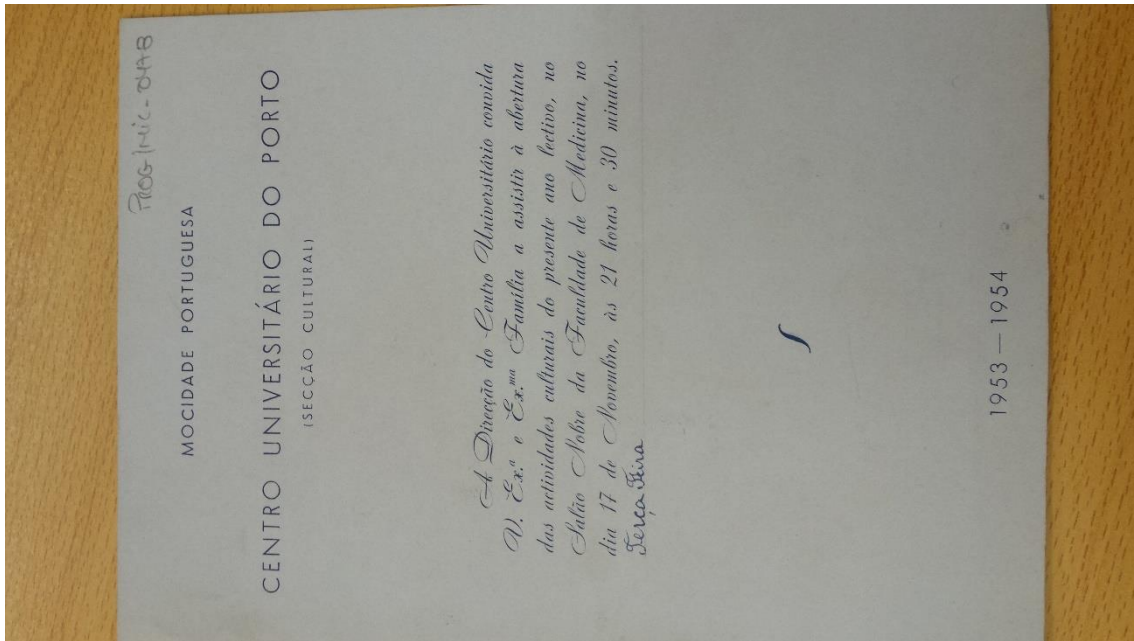 MOCIDADE PORTUGUESA
CENTRO UNIVERSITÁRIO DO PORTO
(SECÇÃO CULTURAL)
A Direcção do Centro Universitário convida
V. Ex.ª e Ex.ma Família a assistir à abertura
das actividades culturais do presente ano lectivo, no
Salão Nobre da Faculdade de Medicina, no
dia 17 de Novembro, às 21 horas e 30 minutos.
Terça Feira
1953 — 1954